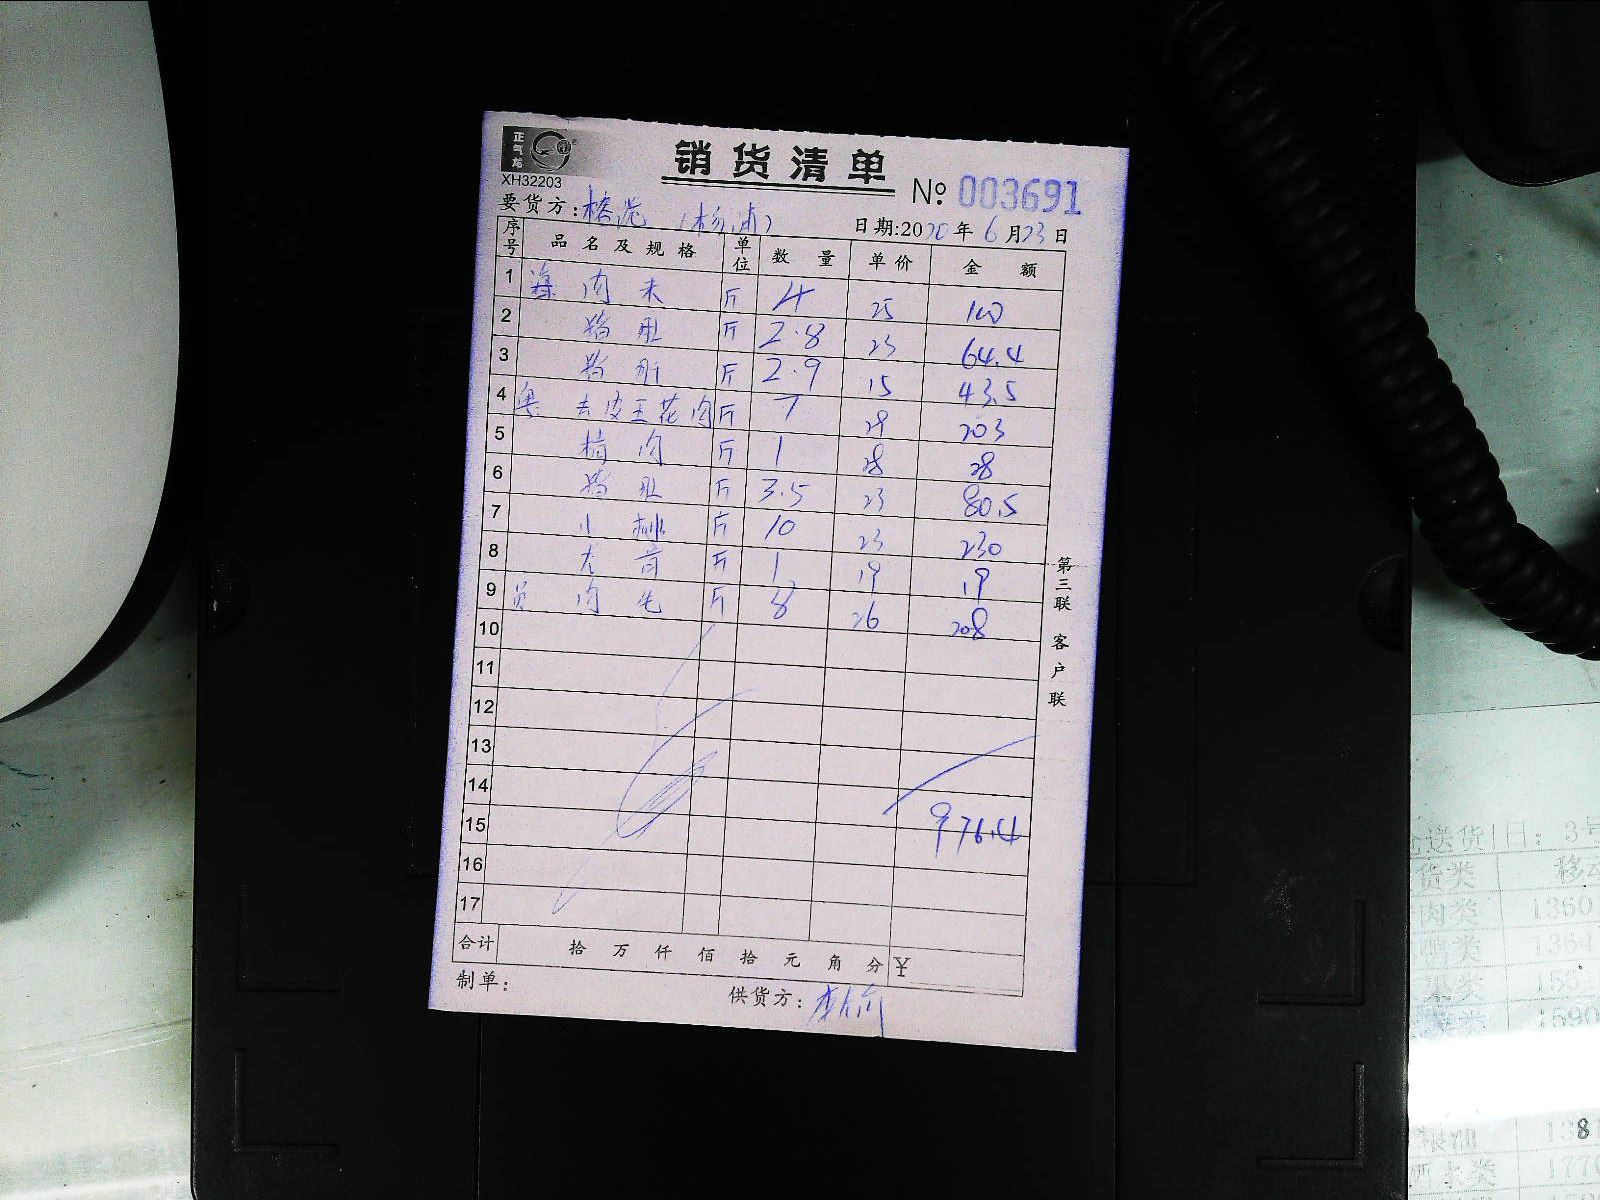 正气龙
XH32203
销货清单
№ 003691
要货方:
日期:2020年6月23日
序号 品名及规格 单位 数量 单价 金额
1 肉末 斤 4 25 100
2 猪肚 斤 2.8 23 64.4
3 猪肝 斤 2.9 15 43.5
4 去皮五花肉 斤 7 29 203
5 精肉 斤 1 28 28
6 猪肚 斤 3.5 23 80.5
7 小排 斤 10 23 230
8 斤 1 19 19
9 肉 斤 8 26 208
10
11
12
13
14
15 976.4
16
17
合计 拾 万 仟 佰 拾 元 角 分 ¥
制单:
供货方:
第三联 客户联
送货 日: 3号
货类 移动
肉类 1360
鸭类 1364
类
类 1590
粮油 138
酒水类 1770